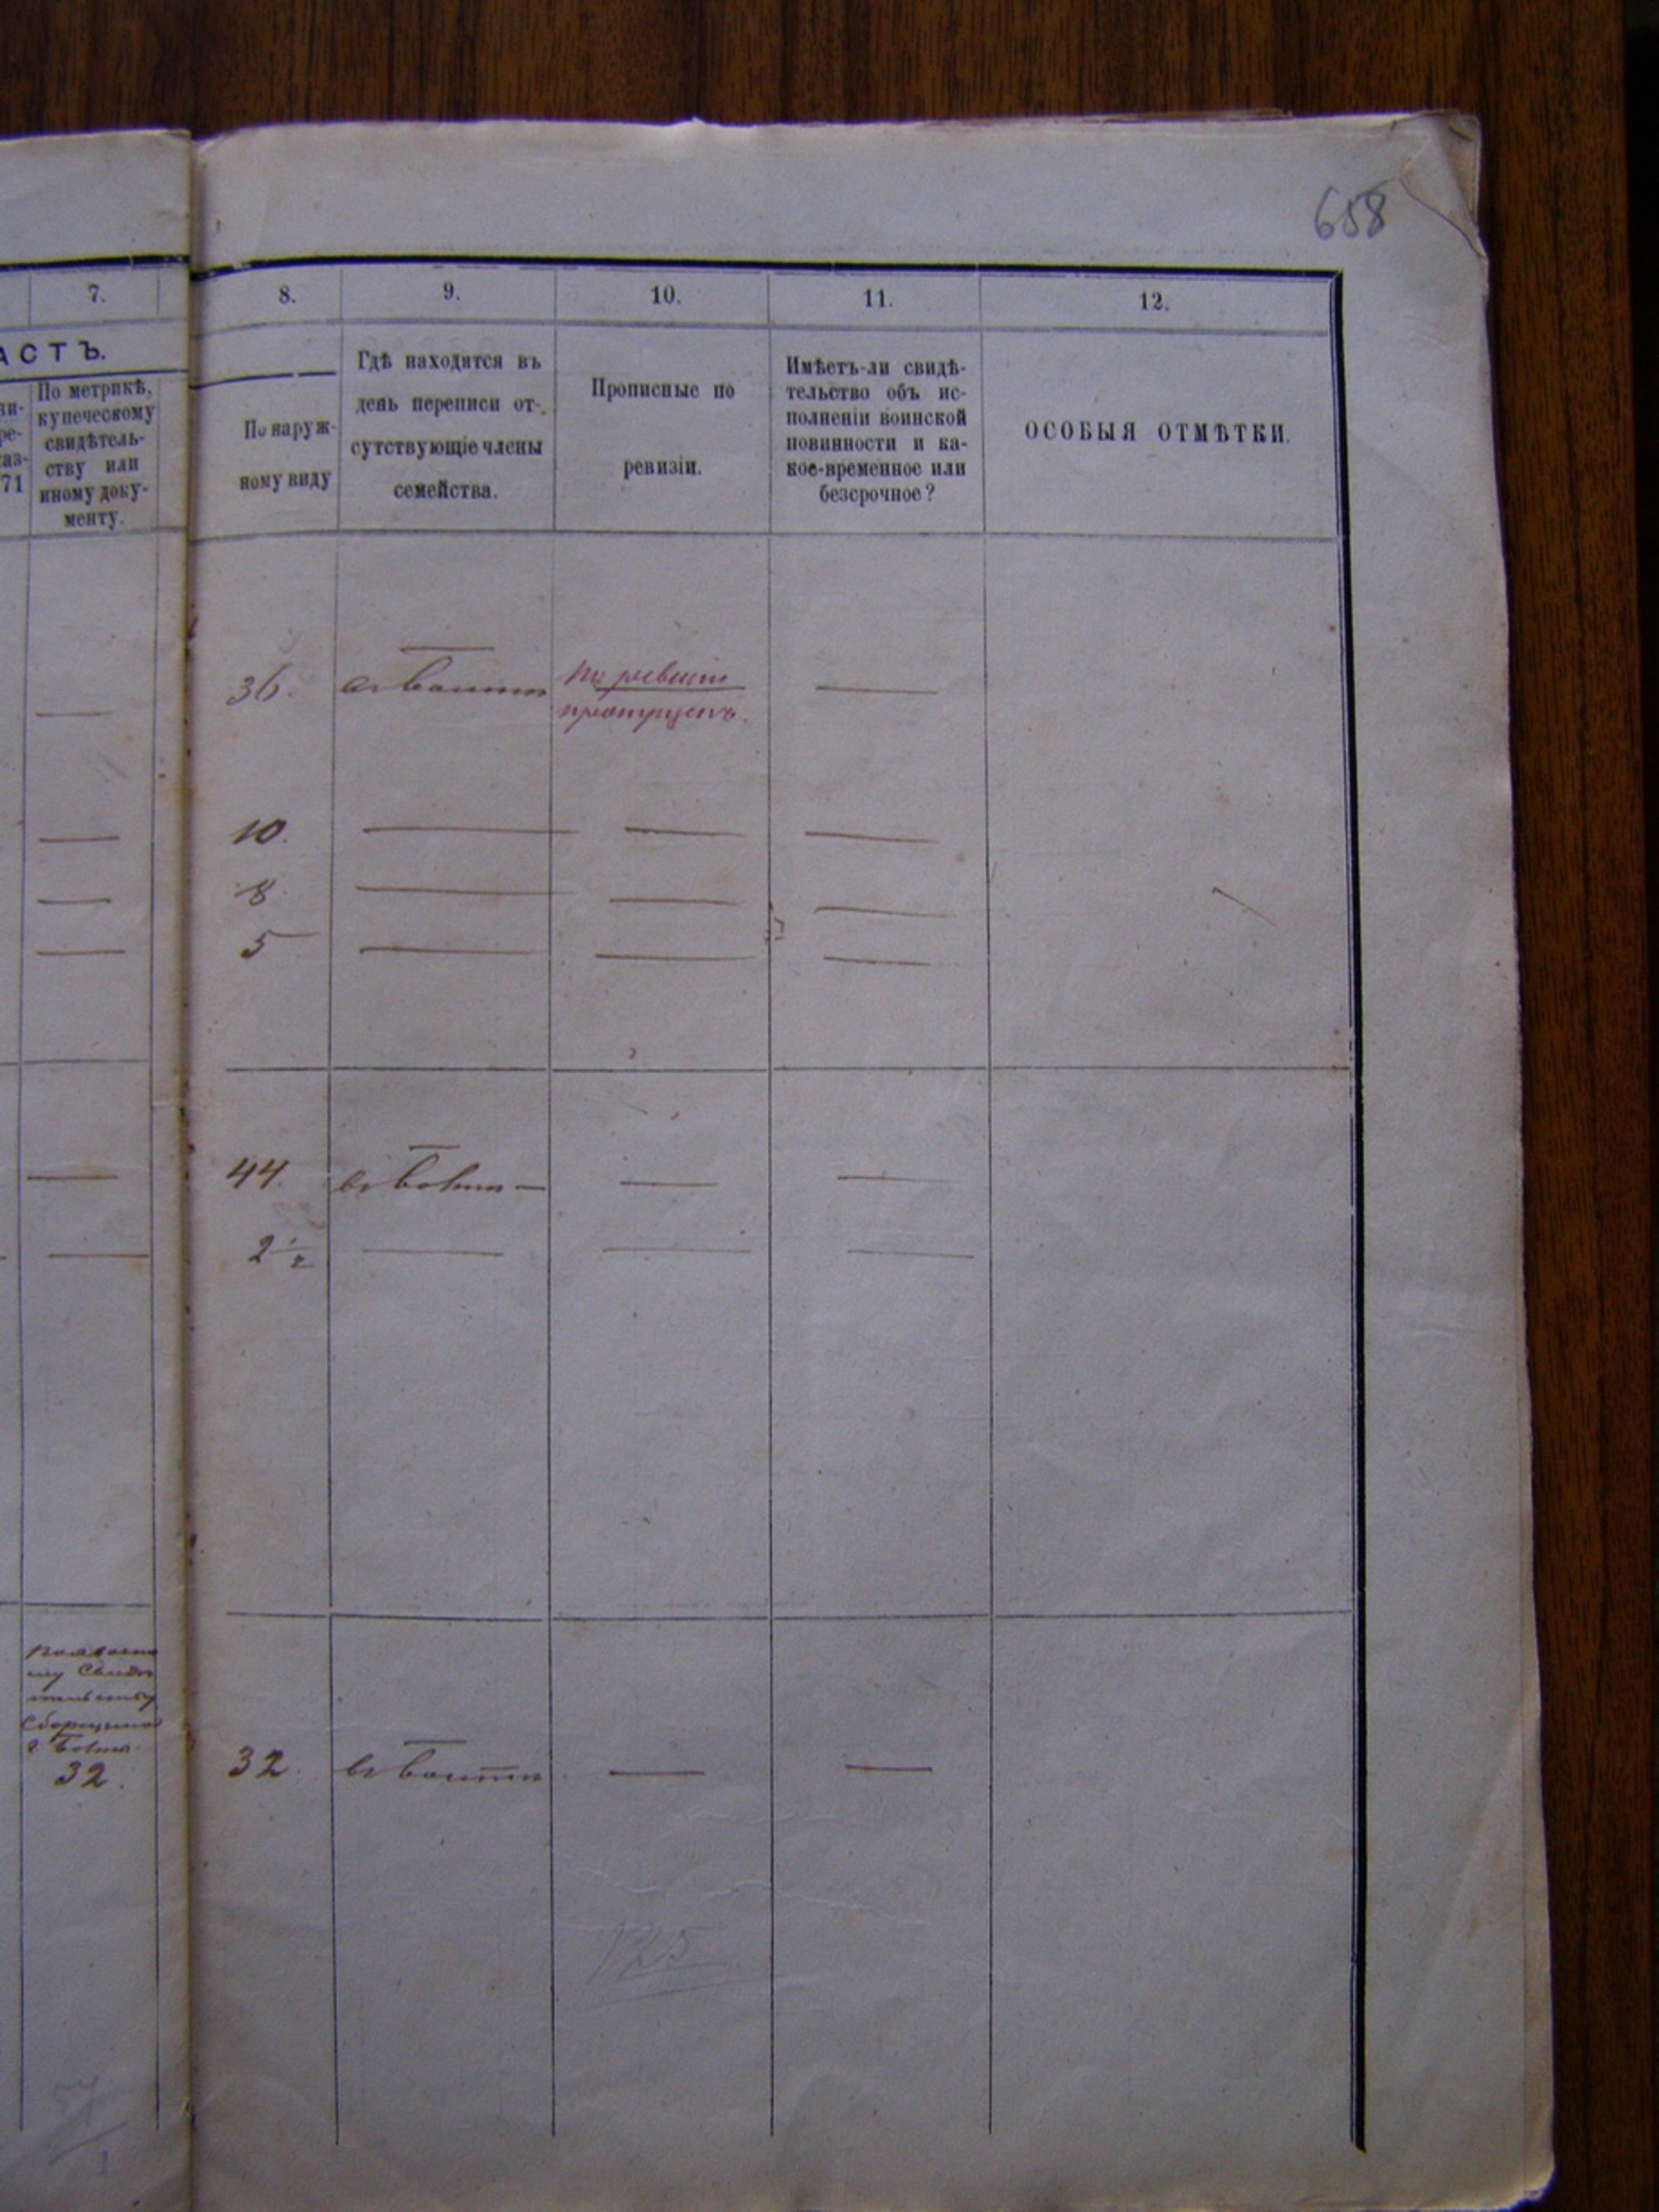 658
7.
8.
9.
10.
11.
12.
АСТЪ.
По метрикѣ,
купеческому
свидѣтель-
ству или
иному доку-
менту.
ви-
ре-
каз-
71
По наруж-
ному виду
Гдѣ находятся въ
день переписи от-
сутствующіе члены
семейства.
Прописные по
ревизіи.
Имѣетъ-ли свидѣ-
тельство объ ис-
полненіи воинской
повинности и ка-
кое-временное или
безсрочное?
ОСОБЫЯ ОТМѢТКИ.
36.
по ревизіи
10.
8.
5
44.
2½
32.
32.
125